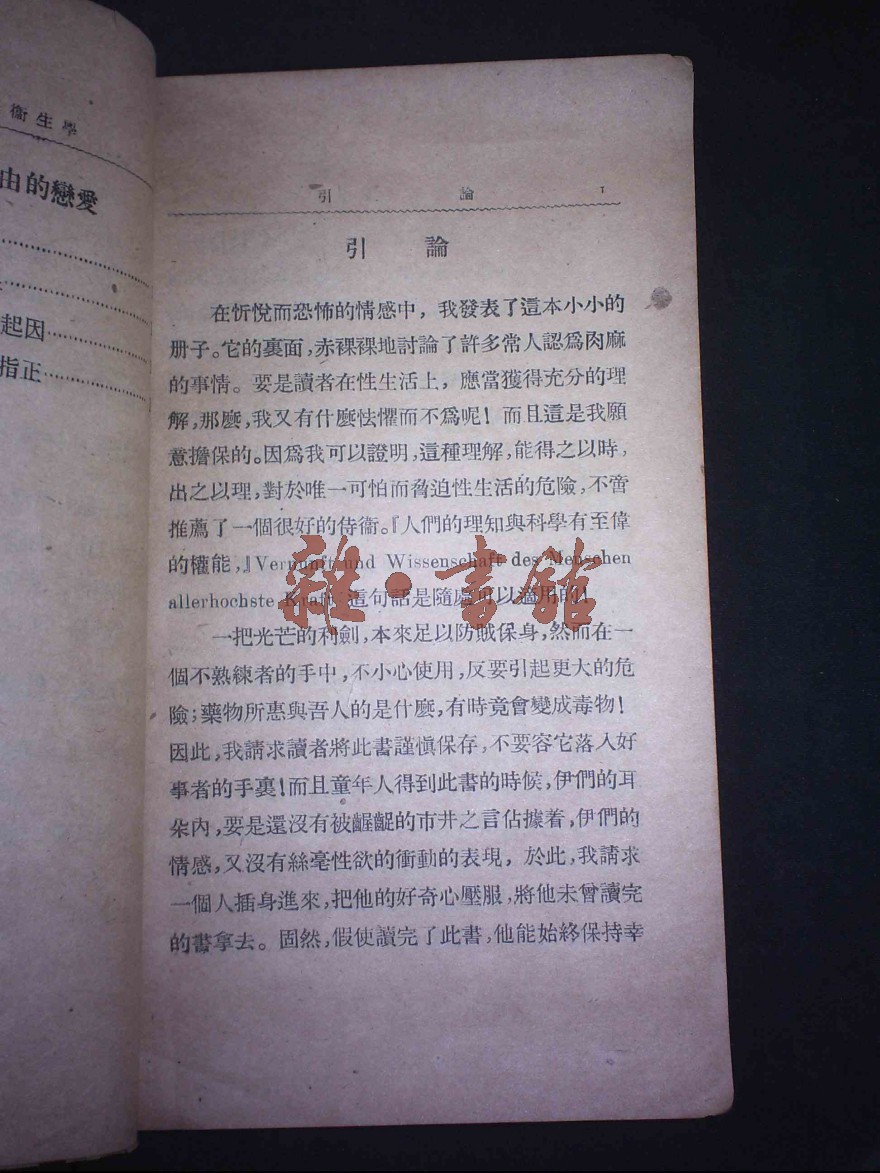 衞生學
由的戀愛
起因
指正
引 論 1
引 論
在忻悅而恐怖的情感中，我發表了這本小小的
册子。它的裏面，赤裸裸地討論了許多常人認爲肉麻
的事情。要是讀者在性生活上，應當獲得充分的理
解，那麼，我又有什麼怯懼而不爲呢！而且這是我願
意擔保的。因爲我可以證明，這種理解，能得之以時，
出之以理，對於唯一可怕而脅迫性生活的危險，不啻
推薦了一個很好的侍衞。『人們的理知與科學有至偉
的權能，』Vernunft und Wissenschaft des Menschen
allerhochste Kraft 這句話是隨處可以適用的！
一把光芒的利劍，本來足以防賊保身，然而在一
個不熟練者的手中，不小心使用，反要引起更大的危
險；藥物所惠與吾人的是什麼，有時竟會變成毒物！
因此，我請求讀者將此書謹愼保存，不要容它落入好
事者的手裏！而且童年人得到此書的時候，伊們的耳
朵內，要是還沒有被齷齪的市井之言佔據着，伊們的
情感，又沒有絲毫性欲的衝動的表現，於此，我請求
一個人插身進來，把他的好奇心壓服，將他未曾讀完
的書拿去。固然，假使讀完了此書，他能始終保持幸
雜·書館